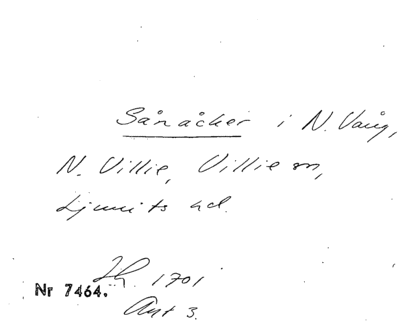 Sånåcker i N. Vång,
N. Villie, Villie sn,
Ljunits hd.
1701
Nr 7464.
Akt 3.